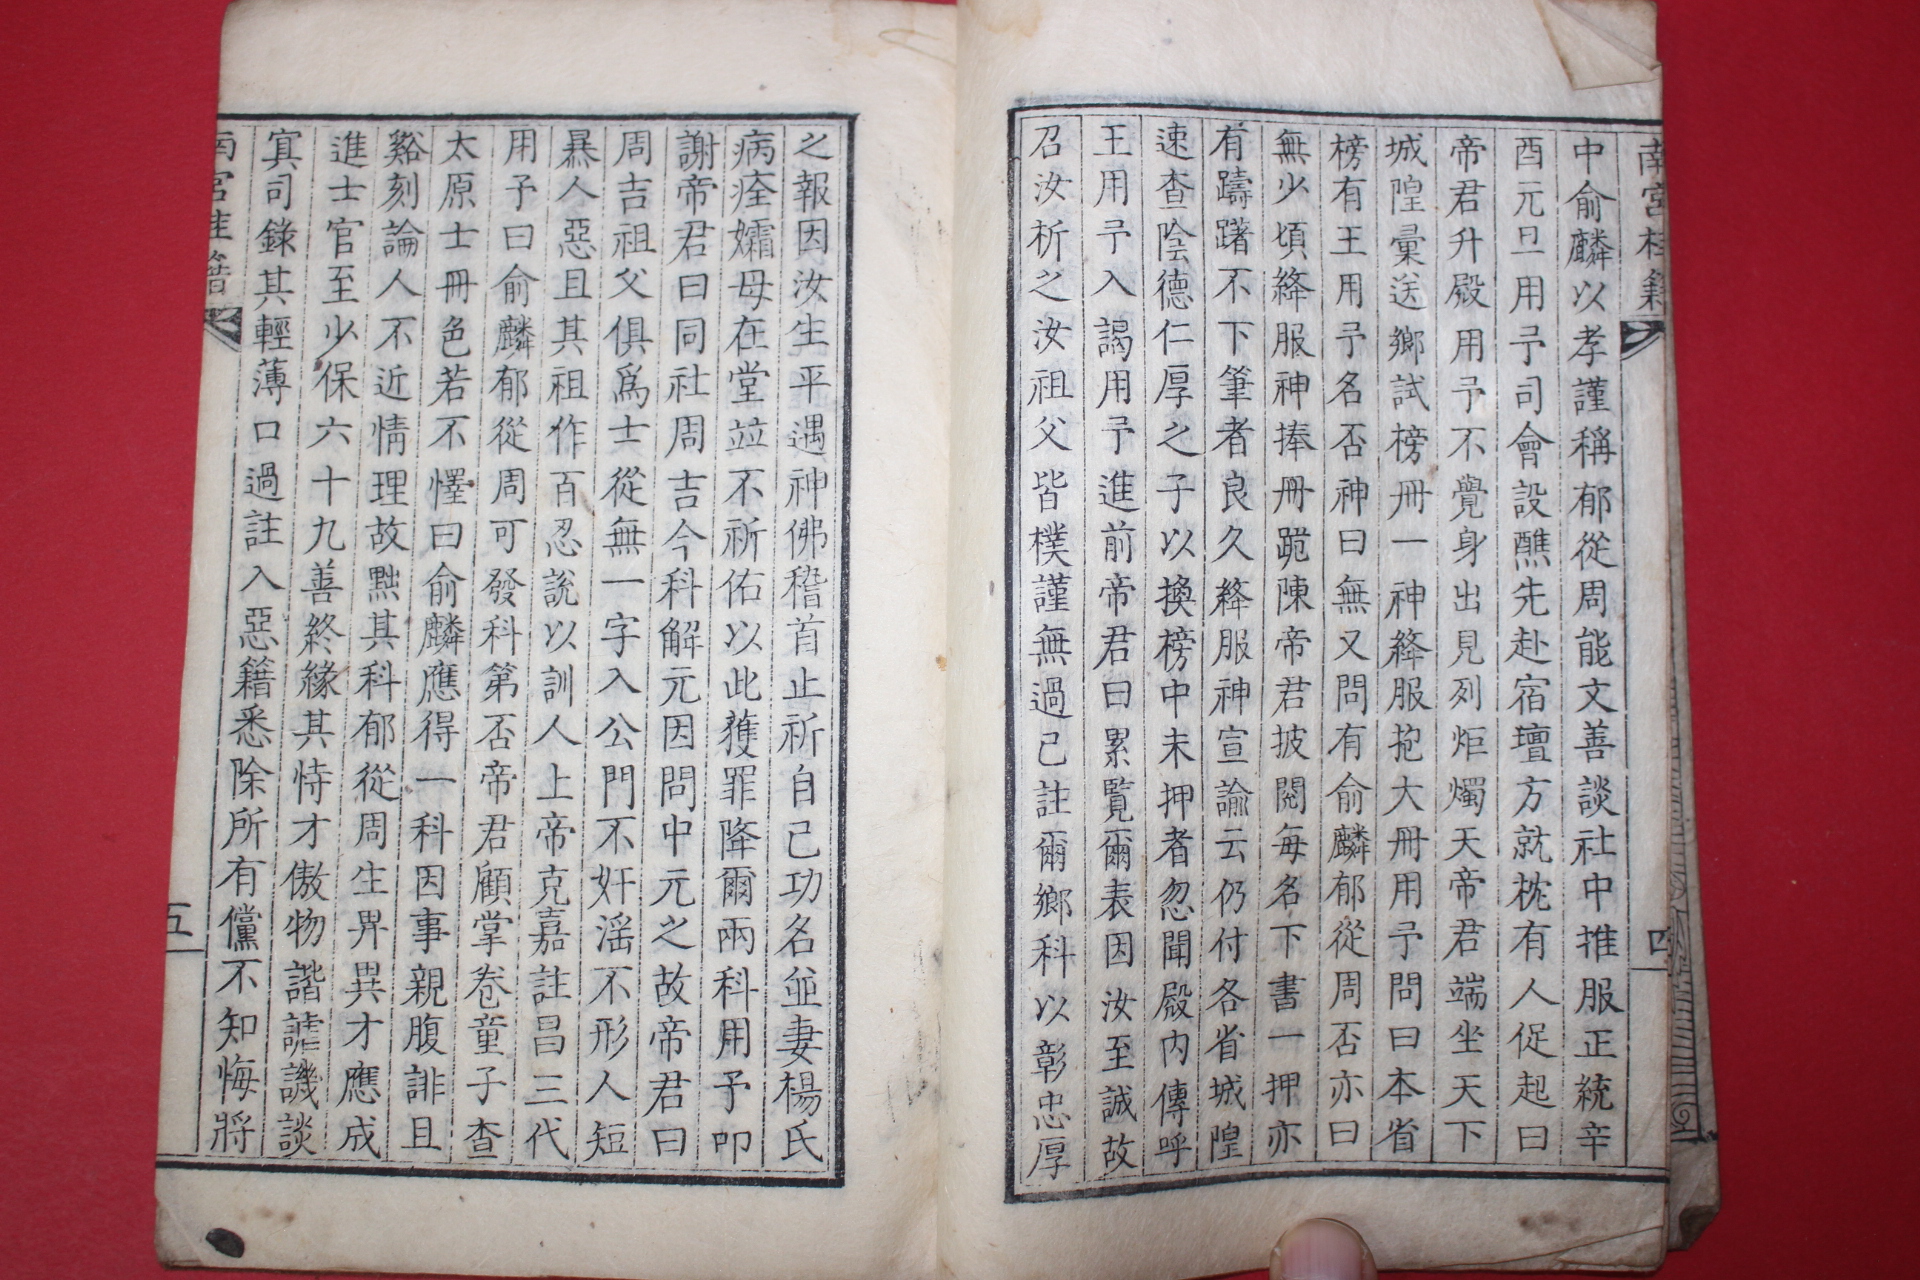 南宮桂籍
四
中俞麟以孝謹稱郁從周能文善談社中推服正統辛
酉元旦用予司會設醮先赴宿壇方就枕有人促起曰
帝君升殿用予不覺身出見列炬燭天帝君端坐天下
城隍彙送鄉試榜冊一神絳服抱大冊用予問曰本省
榜有王用予名否神曰無又問有俞麟郁從周否亦曰
無少頃絳服神捧冊跪陳帝君披閱每名下書一押亦
有躊躇不下筆者良久絳服神宣諭云仍付各省城隍
速查陰德仁厚之子以換榜中未押者忽聞殿內傳呼
王用予入謁用予進前帝君曰累覽爾表因汝至誠故
召汝析之汝祖父皆樸謹無過已註爾鄉科以彰忠厚
之報因汝生平遇神佛稽首止祈自己功名並妻楊氏
病痊孀母在堂並不祈佑以此獲罪降爾兩科用予叩
謝帝君曰同社周吉今科解元因問中元之故帝君曰
周吉祖父俱爲士從無一字入公門不奸滛不形人短
暴人惡且其祖作百忍說以訓人上帝克嘉註昌三代
用予曰俞麟郁從周可發科第否帝君顧掌卷童子查
太原士冊色若不懌曰俞麟應得一科因事親腹誹且
谿刻論人不近情理故黜其科郁從周生畀異才應成
進士官至少保六十九善終緣其恃才傲物諧謔譏談
寘司錄其輕薄口過註入惡籍悉除所有儻不知悔將
南宮桂籍
五